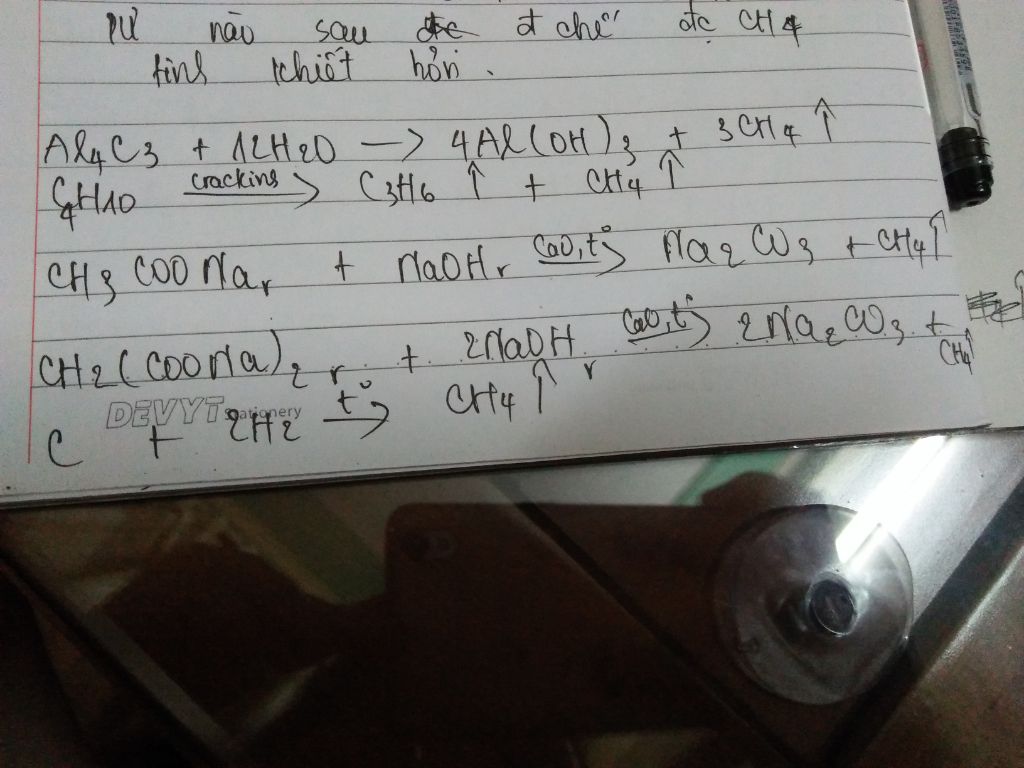 PƯ nào sau đ chế đc CH4
tinh khiết hơn.
Al4C3 + 12H2O → 4Al(OH)3 + 3CH4 ↑
C4H10 cracking → C3H6 ↑ + CH4 ↑
CH3COONa r + NaOH r CaO, t° → Na2CO3 + CH4 ↑
CH2(COONa)2 r + 2NaOH r CaO, t° → 2Na2CO3 + CH4 ↑
DEVYT Stationery
C + 2H2 t° → CH4 ↑